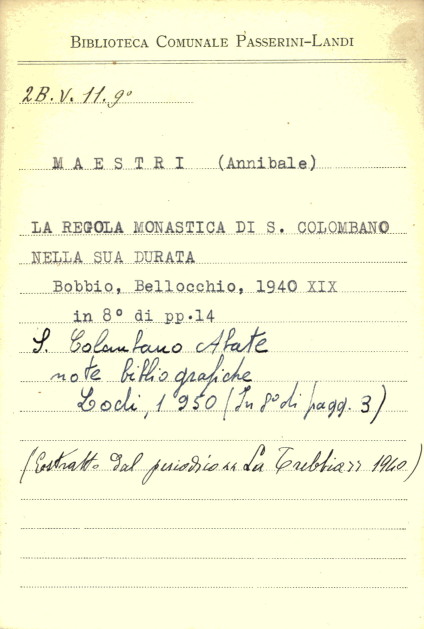 BIBLIOTECA COMUNALE PASSERINI-LANDI
2B.V. 11.9°
MAESTRI (Annibale)
LA REGOLA MONASTICA DI S. COLOMBANO
NELLA SUA DURATA
Bobbio, Bellocchio, 1940 XIX
in 8° di pp.14
S. Colombano Abate
note bibliografiche
Lodi, 1950 (In 8° di pagg. 3)
(Estratto dal periodico << La Trebbia >> 1940)